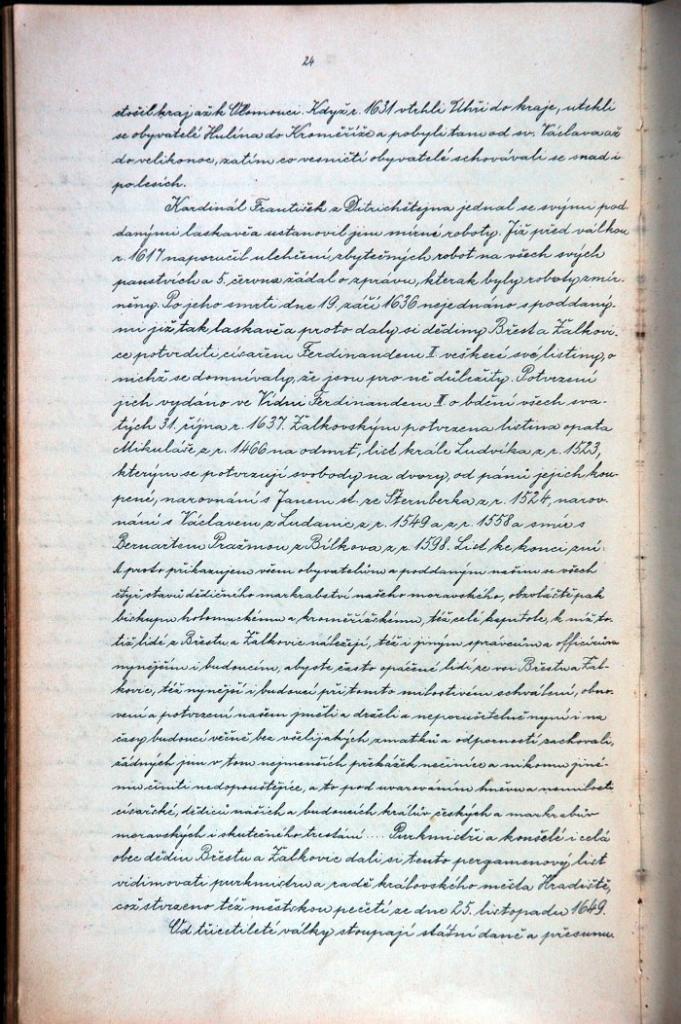 24
točil kraj až k Olomouci. Když r. 1631 vtrhli Uhři do kraje, utekli
se obyvatelé Hulína do Kroměříže a pobyli tam od sv. Václava až
do velikonoc, zatím co vesničtí obyvatelé schovávali se snad i
po lesích.
Kardinál František z Ditrichštejna jednal se svými pod-
danými laskavě a ustanovil jim mírné roboty. Již před válkou
r. 1617 naporučil ulehčení zbytečných robot na všech svých
panstvích a 5. června žádal o zprávu, kterak byly roboty zmír-
něny. Po jeho smrti dne 19. září 1636 nejednáno s poddaný-
mi již tak laskavě a proto daly si dědiny Břest a Žalkovi-
ce potvrditi císařem Ferdinandem II. veškeré své listiny, o
nichž se domnívaly, že jsou pro ně důležity. Potvrzení
jich vydáno ve Vídni Ferdinandem II. o bdění všech sva-
tých 31. října r. 1637. Žalkovským potvrzena listina opata
Mikuláše z r. 1466 na odmrť, list krále Ludvíka z r. 1523,
kterým se potvrzují svobody na dvory, od pánů jejich kou-
pené, narovnání s Janem st. ze Šternberka z r. 1524, narov-
nání s Václavem z Ludanic z r. 1549 a z r. 1558 a smír s
Bernartem Pražmou z Bílkova z r. 1598. List ke konci zní:
A proto přikazujem všem obyvatelům a poddaným našim ze všech
čtyř stavů dědičného markrabství našeho moravského, obzvláště pak
biskupu holomuckému a kroměřížskému, též celé kapitole, k níž to-
tiž lidé z Břestu a Žalkovic náležejí, též i jiným správcům a officírům
nynějším i budoucím, abyste často opáčené lidi ze vsi Břestu a Žal-
kovic, též nynější i budoucí při tomto milostivém schválení, obno-
vení a potvrzení našem jměli a drželi a neporušitelně nyní i na
časy budoucí věčně bez všelijakých zmatků a odporností zachovali,
žádných jim v tom nejmenších překážek nečiníce a nikomu jiné-
mu činiti nedopouštějíce, a to pod uvarováním hněvu a nemilosti
císařské, dědiců našich a budoucích králův českých a markrabův
moravských i skutečného trestání .... Purkmistři a konšelé i celá
obec dědin Břestu a Žalkovic dali si tento pergamenový list
vidimovati purkmistru a radě královského města Hradiště,
což stvrzeno též městskou pečetí ze dne 25. listopadu 1649.
Od třicetileté války stoupají státní daně a přesunu-